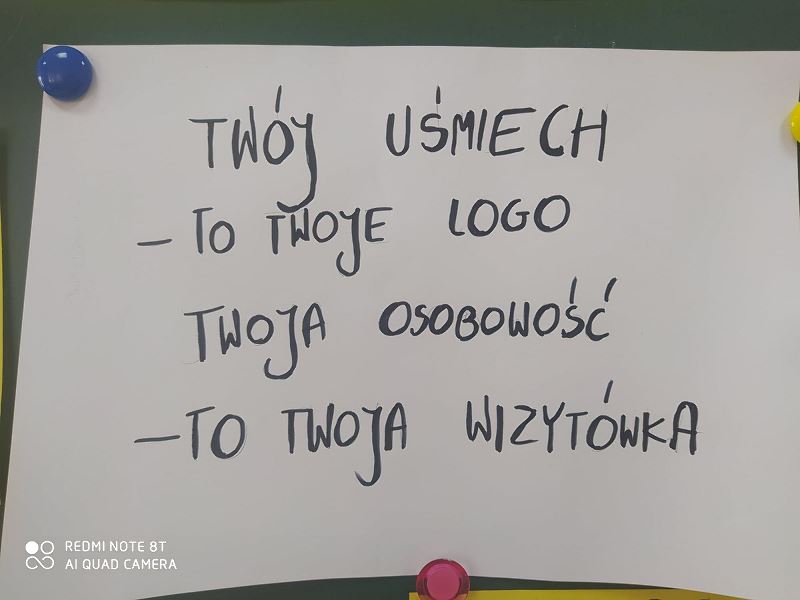 TWÓJ UŚMIECH
– TO TWOJE LOGO
TWOJA OSOBOWOŚĆ
– TO TWOJA WIZYTÓWKA
REDMI NOTE 8T
AI QUAD CAMERA